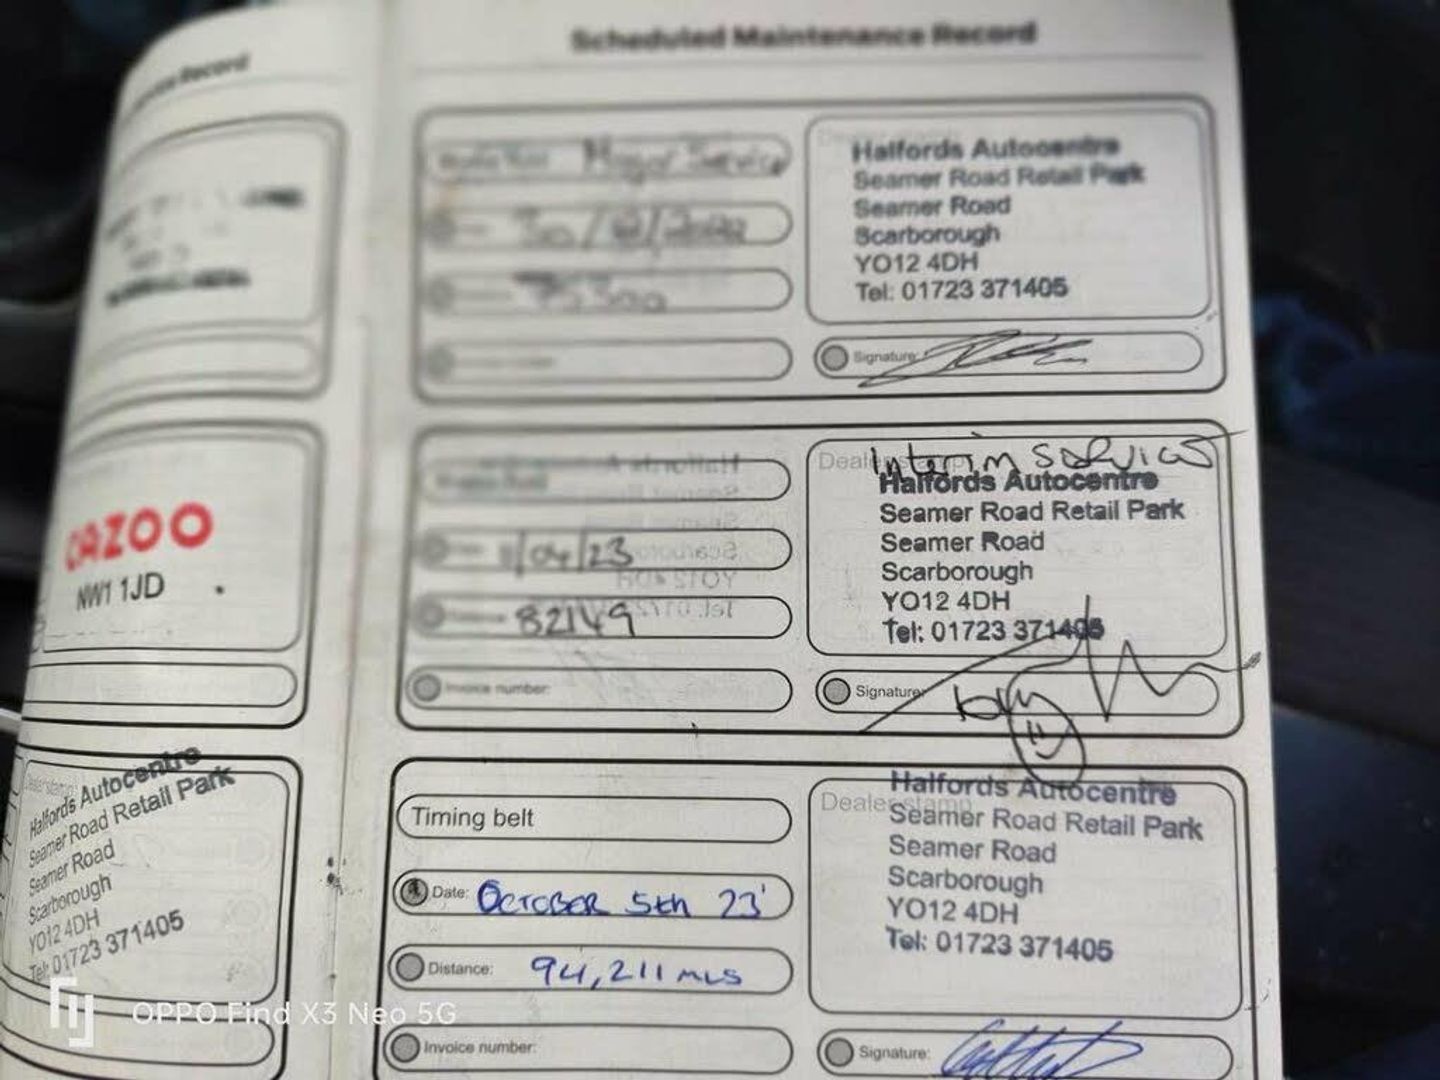 Record
Scheduled Maintenance Record
Major Service
Halfords Autocentre
Seamer Road Retail Park
Seamer Road
Scarborough
YO12 4DH
Tel: 01723 371405
Signature:
CAZOO
NW1 1JD
/04/23
82149
Invoice number:
Dealer stamp
Interim service
Halfords Autocentre
Seamer Road Retail Park
Seamer Road
Scarborough
YO12 4DH
Tel: 01723 371405
Signature:
Dealer stamp
Halfords Autocentre
Seamer Road Retail Park
Seamer Road
Scarborough
YO12 4DH
Tel: 01723 371405
Timing belt
Date: October 5th 23'
Distance: 94,211 mls
Invoice number:
Dealer stamp
Halfords Autocentre
Seamer Road Retail Park
Seamer Road
Scarborough
YO12 4DH
Tel: 01723 371405
Signature:
OPPO Find X3 Neo 5G